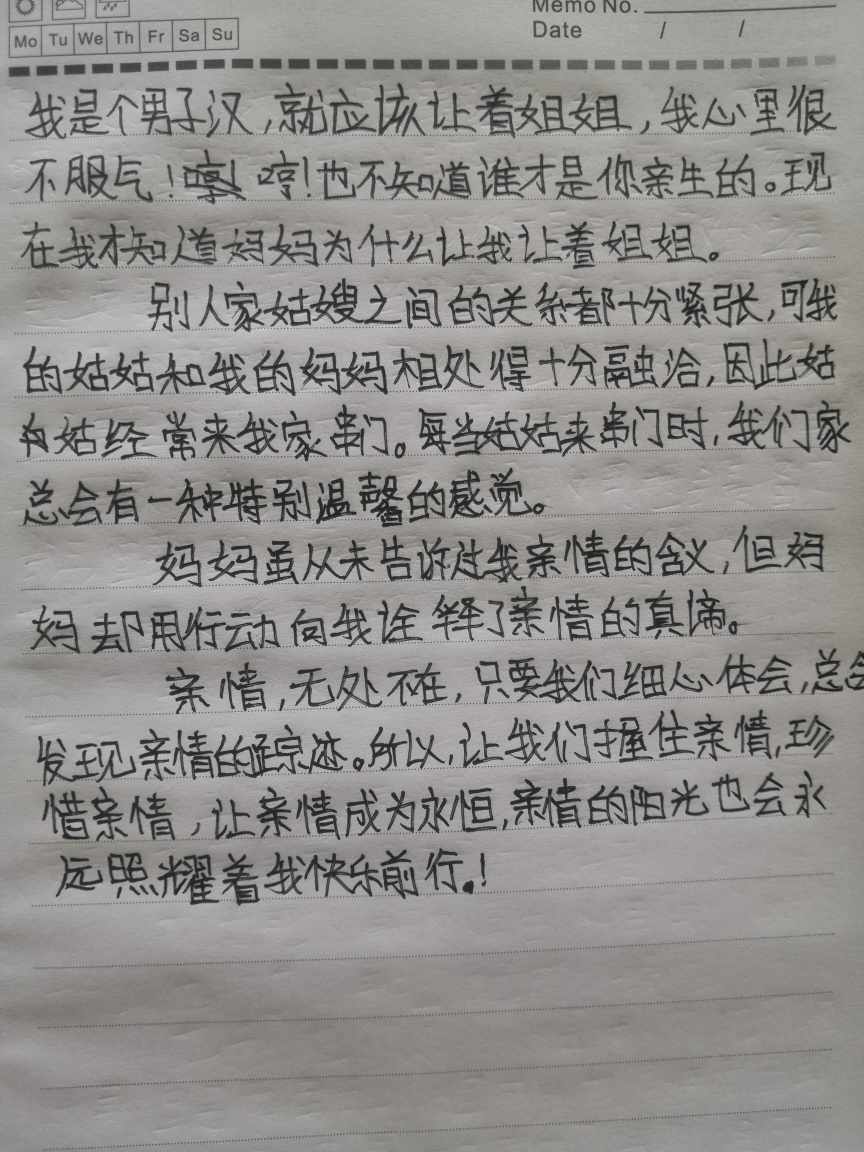 Memo No.
Mo Tu We Th Fr Sa Su
Date / /
我是个男子汉,就应该让着姐姐,我心里很
不服气!哼!也不知道谁才是你亲生的。现
在我才知道妈妈为什么让我让着姐姐。
别人家姑嫂之间的关系都十分紧张,可我
的姑姑和我的妈妈相处得十分融洽,因此姑
姑经常来我家串门。每当姑姑来串门时,我们家
总会有一种特别温馨的感觉。
妈妈虽从未告诉过我亲情的含义,但妈
妈却用行动向我诠释了亲情的真谛。
亲情,无处不在,只要我们细心体会,总会
发现亲情的踪迹。所以,让我们握住亲情,珍
惜亲情,让亲情成为永恒,亲情的阳光也会永
远照耀着我快乐前行。!